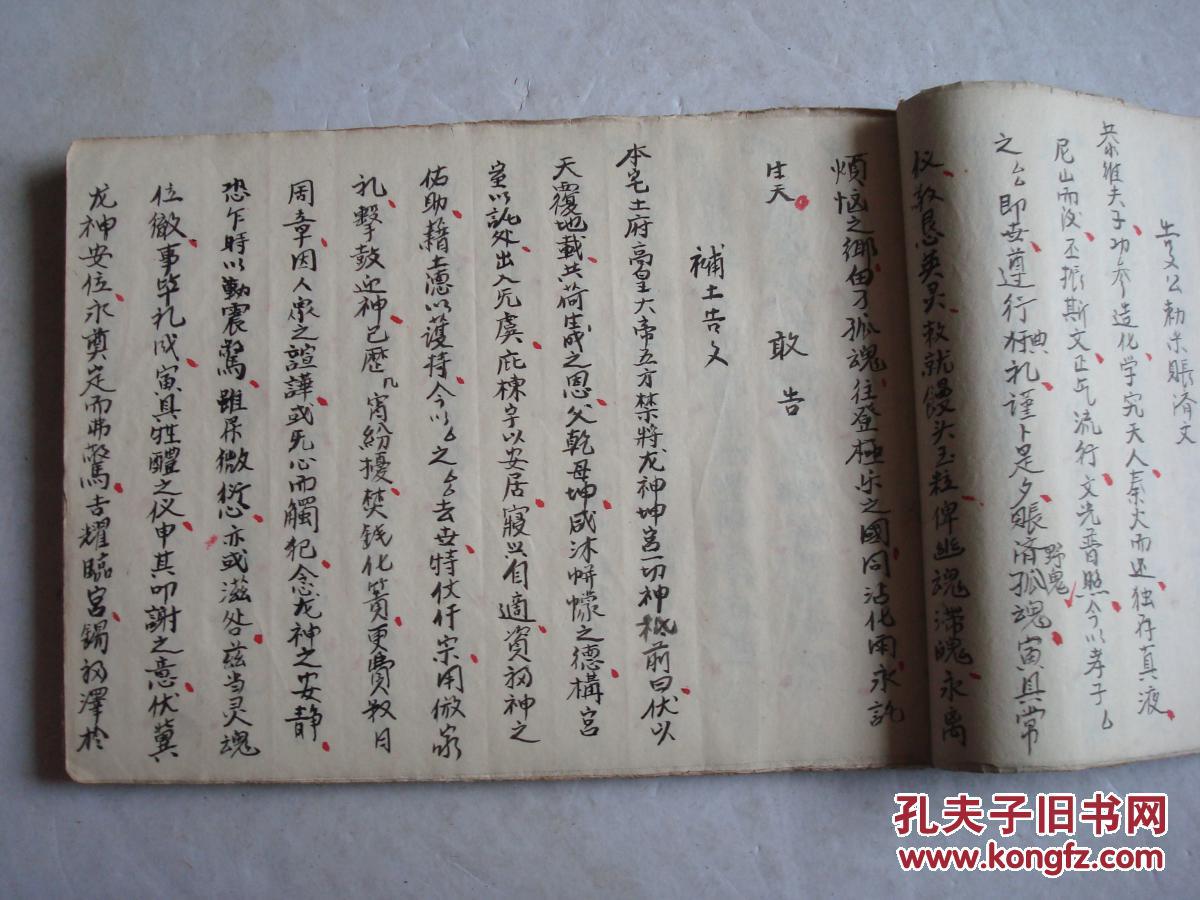 告文公勅米賬済文
恭維夫子功参造化学究天人秦火而还独存真液
尼山而後丕振斯文正气流行文光普照今以孝子么
之厶即世遵行典礼谨卜是夕賬済孤魂野鬼寅具常
仪敢恳英灵救就饅头玉粒俾幽魂滞魄永离
煩恼之鄉由刀孤魂往登極乐之國同沾化雨永託
生天
敢告
補土告文
本宅土府高皇大帝五方禁將龙神坤宫一切神祗前曰伏以
天覆地載共荷生成之恩父乾母坤咸沐帡幪之德構宮
室以託处出入无虞庇棟宇以安居寢興自適資福神之
佑助籍土德以護持今以厶之厶去世特仗仟宗用倣家
礼擊鼓迎神已歷几宵紛擾焚钱化箕更費数日
周章因人衆之諠譁或无心而觸犯念龙神之安静
恐乍時以動震驚雖保微愆亦或滋咎兹当灵魂
位徹事毕礼成寅具牲醴之仪申其叩謝之意伏冀
龙神安位永奠定而弗驚吉耀臨宮錫福澤於
孔夫子旧书网
www.kongfz.com